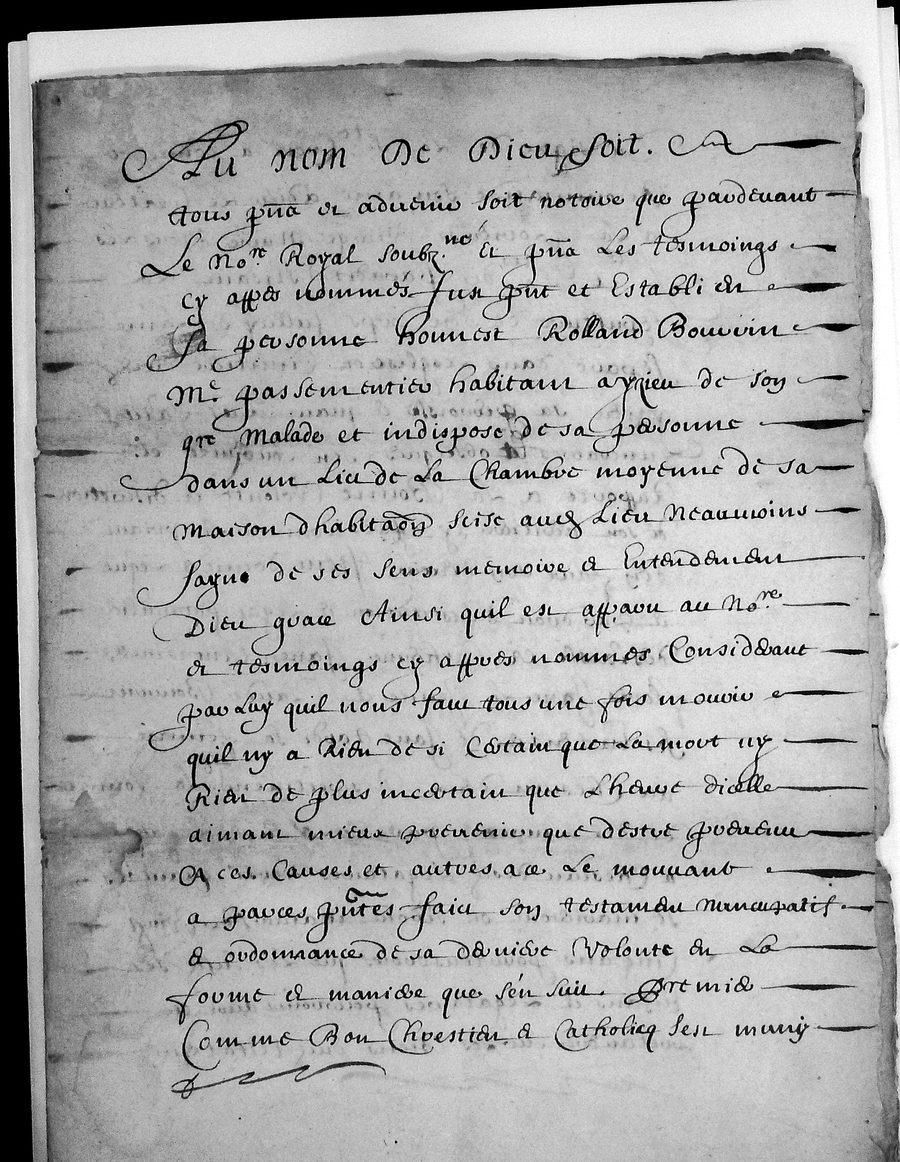 Au nom De Dieu soit.
tous pñs et advenir soit notoire que pardevant
Le No.re Royal soubz.né Et pñs Les tesmoings
cy appes nommes fust pñt et Establi en
sa personne honnest Rolland Bouvin
M.e passementier habitant a de son
gre malade et indispose de sa personne
dans un Lict de La Chambre moyenne de sa
maison dhabitaõn scise aud Lieu Neaumoins
sayne de ses sens memoire et Entendement
Dieu grace Ainsi quil est apparu au No.re
et tesmoings cy appres nommes Considerant
par Luy quil nous faut tous une fois mourir et
quil ny a Rien de si Certain que La mort ny
Rien de plus incertain que Lheure dicelle
aimant mieux prevenir que destre prevenu
A ces Causes et autres a ce Le mouvant
a par ces pñtes faict son testament nuncupatif
et ordonnance de sa derniere Volonte en La
forme et maniere que sen suit. Premier
Comme Bon Chrestien et Catholicq sest muny